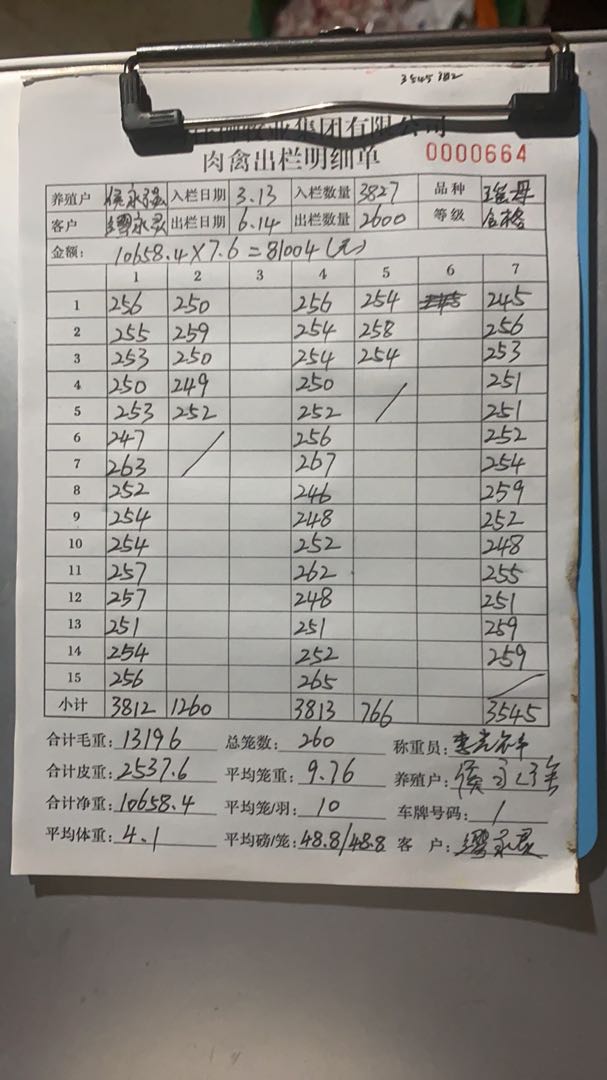 3545 382
业集团有限公司
肉禽出栏明细单 0000664
养殖户 侯永强 入栏日期 3.13 入栏数量 3827 品种
客户 缪永灵 出栏日期 6.14 出栏数量 2600 等级 合格
金额: 10658.4×7.6=81004(元)
1 2 3 4 5 6 7
1 256 250 256 254 245
2 255 259 254 258 256
3 253 250 254 254 253
4 250 249 250 251
5 253 252 252 251
6 247 256 252
7 263 267 254
8 252 246 259
9 254 248 252
10 254 252 248
11 257 262 255
12 257 248 251
13 251 251 259
14 254 252 259
15 256 265
小计 3812 1260 3813 766 3545
合计毛重: 13196 总笼数: 260 称重员:
合计皮重: 2537.6 平均笼重: 9.76 养殖户: 侯永强
合计净重: 10658.4 平均笼/羽: 10 车牌号码: /
平均体重: 4.1 平均磅/笼: 48.8/48.8 客户: 缪永灵